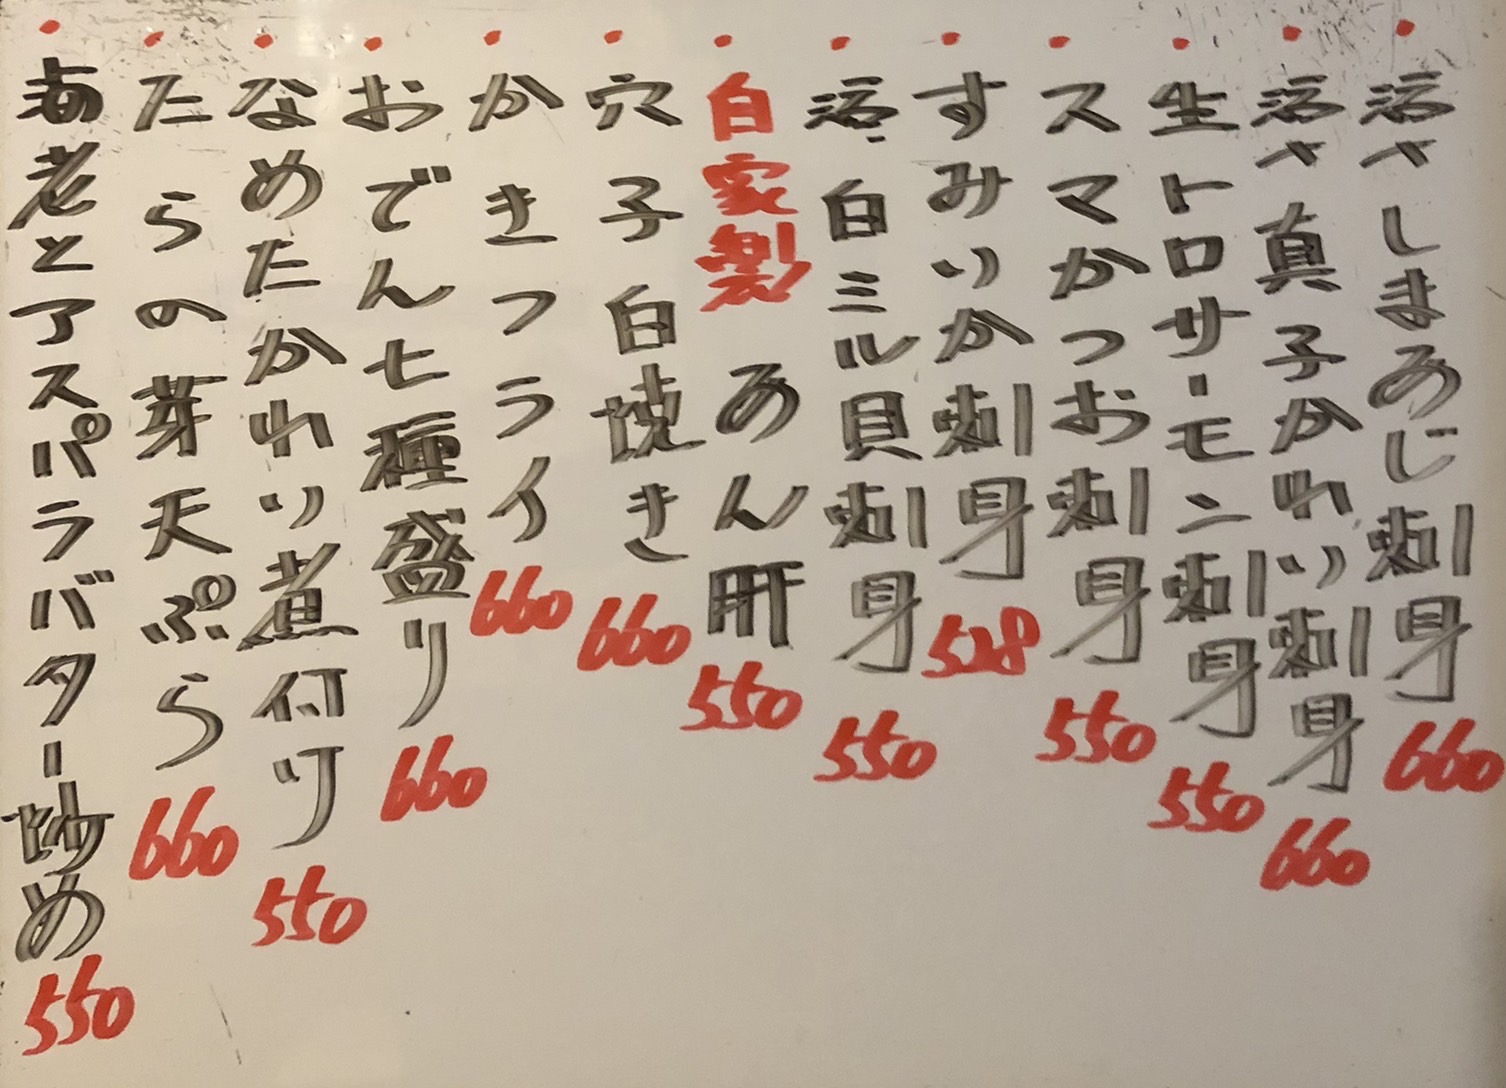 活〆しまあじ刺身 660
活〆真子かれい刺身 660
生トロサーモン刺身 550
スマかつお刺身 550
すみいか刺身 528
活白ミル貝刺身 550
自家製 あん肝 550
穴子白焼き 660
かきフライ 660
おでん七種盛り 660
なめたかれい煮付け 550
たらの芽天ぷら 660
海老とアスパラバター炒め 550